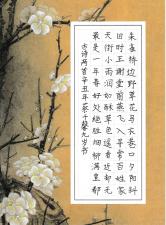 朱雀桥边野草花乌衣巷口夕阳斜
旧时王谢堂前燕飞入寻常百姓家
天街小雨润如酥草色遥看近却无
最是一年春好处绝胜烟柳满皇都
古诗两首辛丑年九岁书